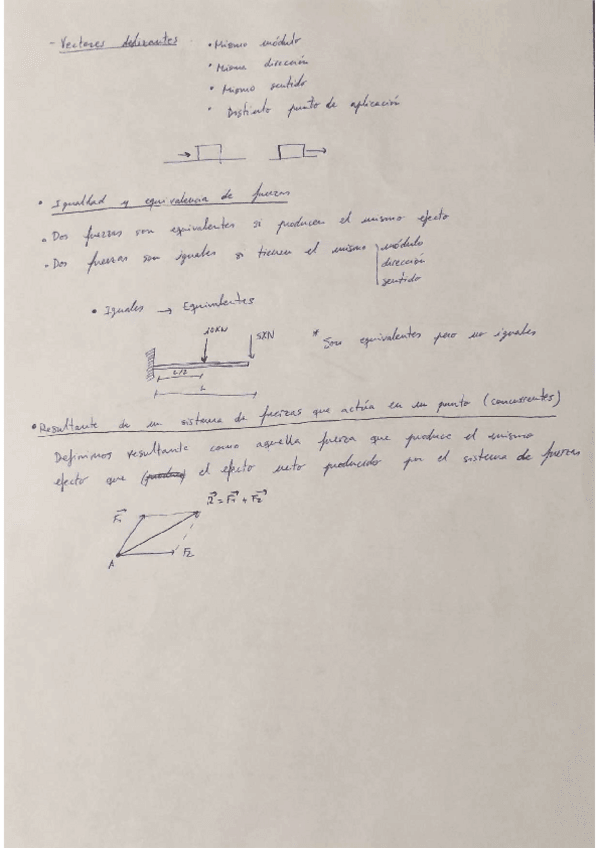 - Vectores deslizantes · Mismo módulo
· Misma dirección
· Mismo sentido
· Distinto punto de aplicación
· Igualdad y equivalencia de fuerzas
· Dos fuerzas son equivalentes si producen el mismo efecto
- Dos fuerzas son iguales si tienen el mismo módulo
dirección
sentido
· Iguales → Equivalentes
10KN
5KN
* Son equivalentes pero no iguales
L/2
L
· Resultante de un sistema de fuerzas que actúa en un punto (concurrentes)
Definimos resultante como aquella fuerza que produce el mismo
efecto que el efecto neto producido por el sistema de fuerzas
F1
R = F1 + F2
A
F2